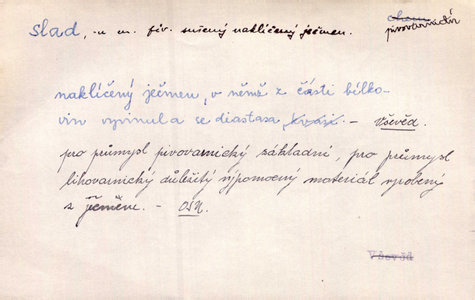 slad, -u m. piv. sušený naklíčený ječmen.
chem
pivovarnictví
naklíčený ječmen, v němž z části bílko-
vin vyvinula se diastasa – Vševěd.
pro průmysl pivovarnický základní, pro průmysl
lihovarnický důležitý výpomocný materiál vyrobený
z ječmene. – OSN.
Vševěd